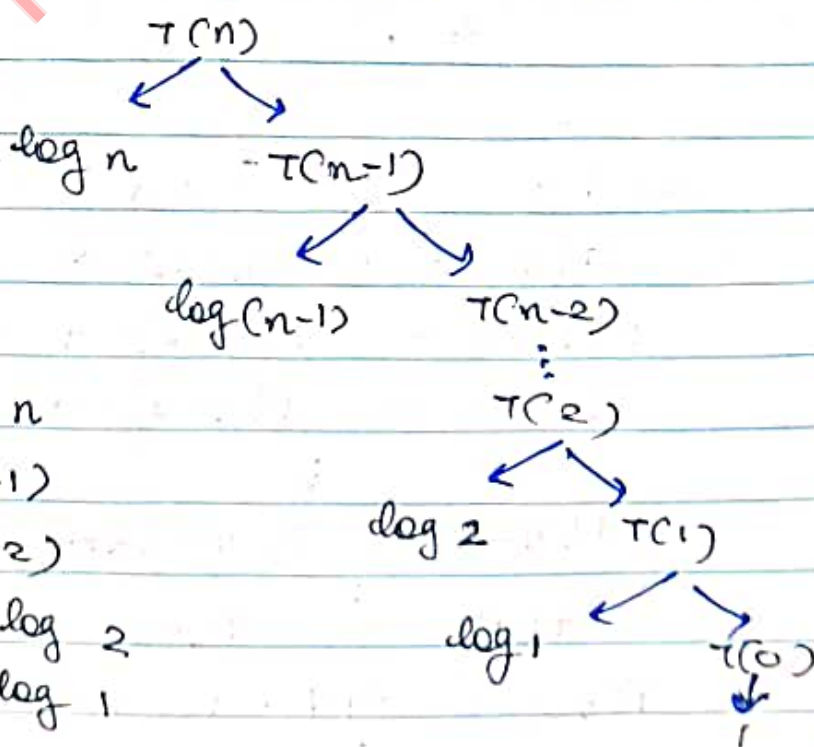 T(n)
log n T(n-1)
log(n-1) T(n-2)
n T(2)
-1)
log 2 T(1)
2)
log 2 log 1 T(0)
log 1 1